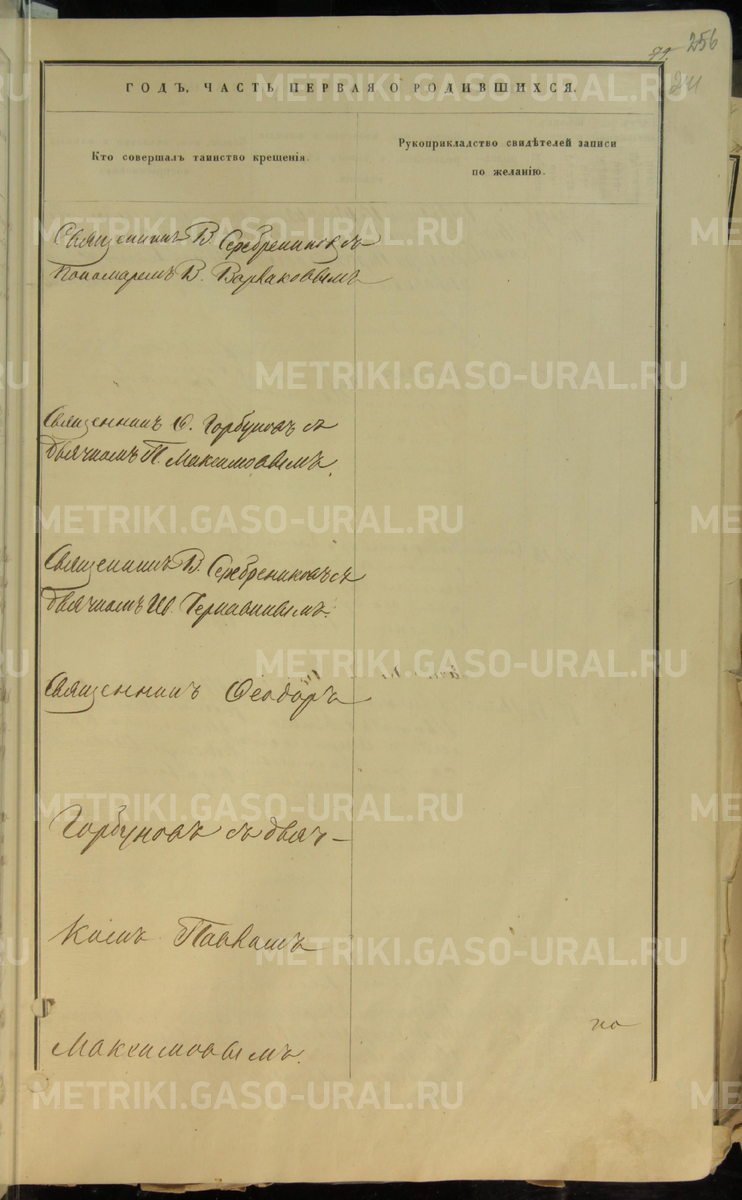 79. 256
241
ГОДЪ, ЧАСТЬ ПЕРВАЯ О РОДИВШИХСЯ.
Кто совершалъ таинство крещенія.
Рукоприкладство свидѣтелей записи
по желанію.
Священникъ В. Серебрениковъ съ
Пономаремъ В. Варваковымъ
Священникъ Ѳ. Горбуновъ съ
дьячкомъ П. Максимовымъ.
Священникъ В. Серебрениковъ съ
дьячкомъ Ив. Чернавинымъ.
Священникъ Ѳеодоръ
Горбуновъ съ дьяч-
комъ Павломъ
Максимовымъ.
по
METRIKI.GASO-URAL.RU